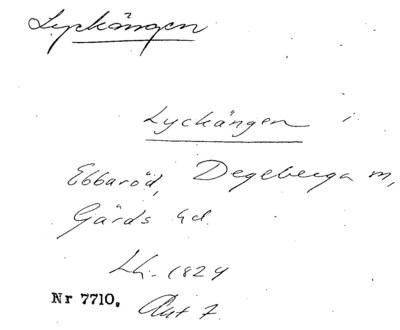 Lyckängen
Lyckängen i
Ebbaröd, Degeberga m,
Gärds hd.
Lh. 1829
Nr 7710. Akt 7.